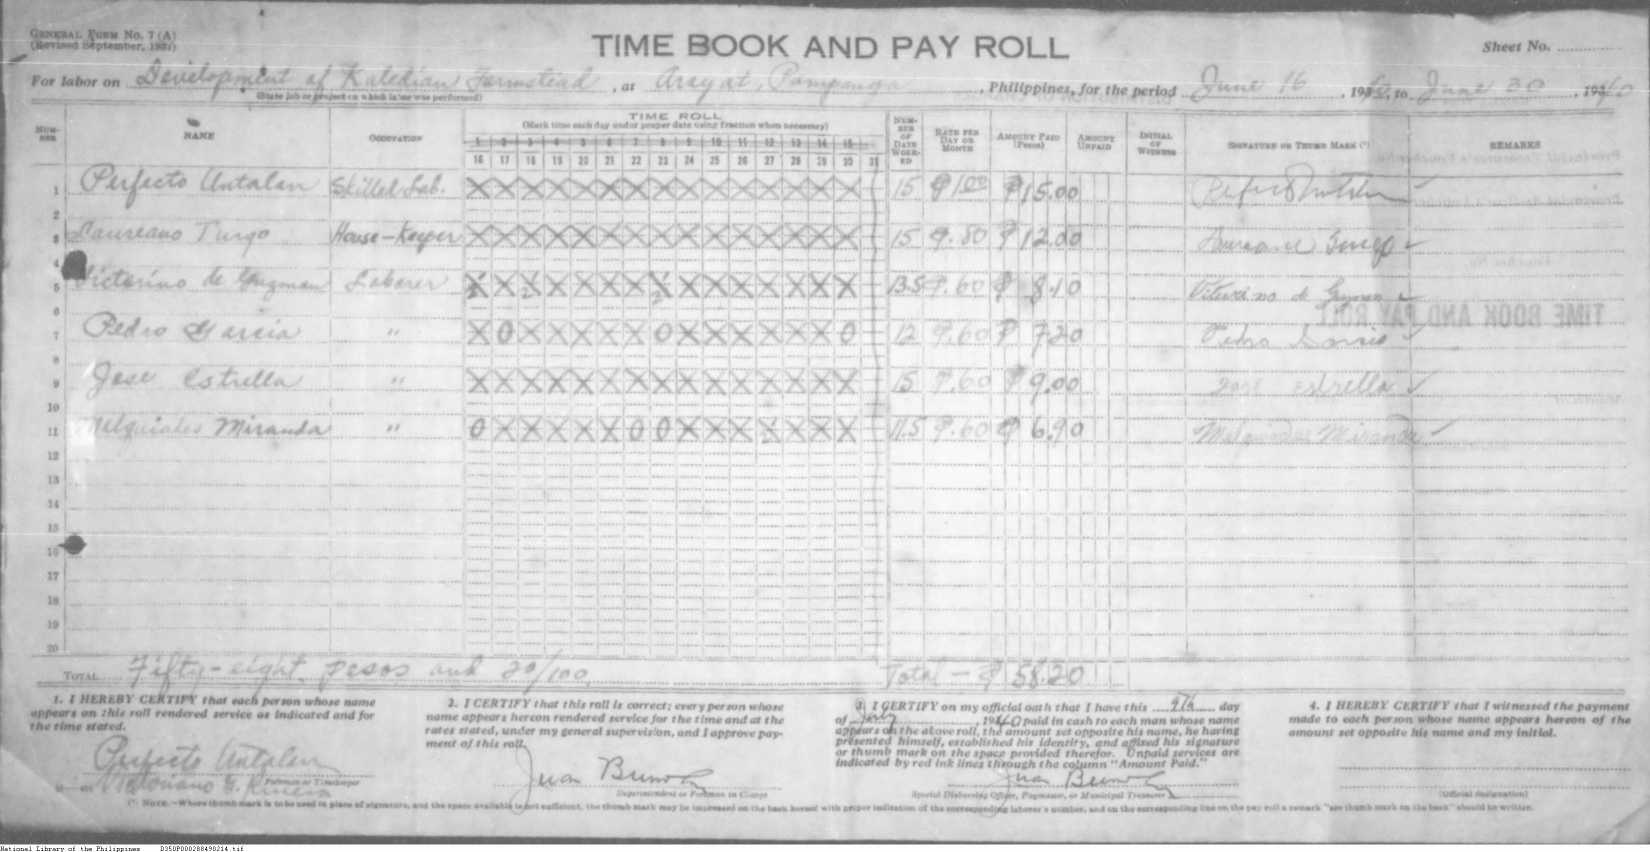 GENERAL FORM No. 7 (A)
(Revised September, 1931)
TIME BOOK AND PAY ROLL
Sheet No.
For labor on Development of Kaledian Farmstead, at Arayat, Pampanga, Philippines, for the period June 16, 1940, to June 30, 1940
(State job or project on which labor was performed)
NUMBER NAME OCCUPATION TIME ROLL NUMBER OF DAYS WORKED RATE PER DAY OR MONTH AMOUNT PAID (Pesos) AMOUNT UNPAID INITIAL OF WITNESS SIGNATURE OR THUMB MARK (*) REMARKS
(Mark time each day under proper date using fraction when necessary)
1 2 3 4 5 6 7 8 9 10 11 12 13 14 15
16 17 18 19 20 21 22 23 24 25 26 27 28 29 30 31
1 Perfecto Antalan Skilled Lab. X X X X X X X X X X X X X X X 15 ₱1.00 ₱15.00
2
3 Laureano Turgo House-Keeper X X X X X X X X X X X X X X X 15 ₱.80 ₱12.00
4
5 Victorino de Guzman Laborer 13.5 ₱.60 ₱8.10 Victorino de Guzman
6
7 Pedro Garcia " X 0 X X X X X 0 X X X X X X 0 12 ₱.60 ₱7.20 Pedro Garcia
8
9 Jose Estrella " X X X X X X X X X X X X X X X 15 ₱.60 ₱9.00 Jose Estrella
10
11 Melquiades Miranda " 0 X X X X X 0 0 X X X X X X X 11.5 ₱.60 ₱6.90 Melquiades Miranda
12
13
14
15
16
17
18
19
20
TOTAL Fifty-eight pesos and 20/100 Total — ₱58.20
1. I HEREBY CERTIFY that each person whose name
appears on this roll rendered service as indicated and for
the time stated.
Perfecto Antalan
Foreman or Timekeeper
2. I CERTIFY that this roll is correct; every person whose
name appears hereon rendered service for the time and at the
rates stated, under my general supervision, and I approve pay-
ment of this roll.
Juan
Superintendent or Foreman in Charge
3. I CERTIFY on my official oath that I have this 9th day
of July, 1940 paid in cash to each man whose name
appears on the above roll, the amount set opposite his name, he having
presented himself, established his identity, and affixed his signature
or thumb mark on the space provided therefor. Unpaid services are
indicated by red ink lines through the column "Amount Paid."
Juan
Special Disbursing Officer, Paymaster, or Municipal Treasurer
4. I HEREBY CERTIFY that I witnessed the payment
made to each person whose name appears hereon of the
amount set opposite his name and my initial.
(Official designation)
(*) NOTE.—Where thumb mark is to be used in place of signature, and the space available is not sufficient, the thumb mark may be impressed on the back hereof with proper indication of the corresponding laborer's number, and on the corresponding line on the pay roll a remark "see thumb mark on the back" should be written.
National Library of the Philippines D350P000288490214.tif